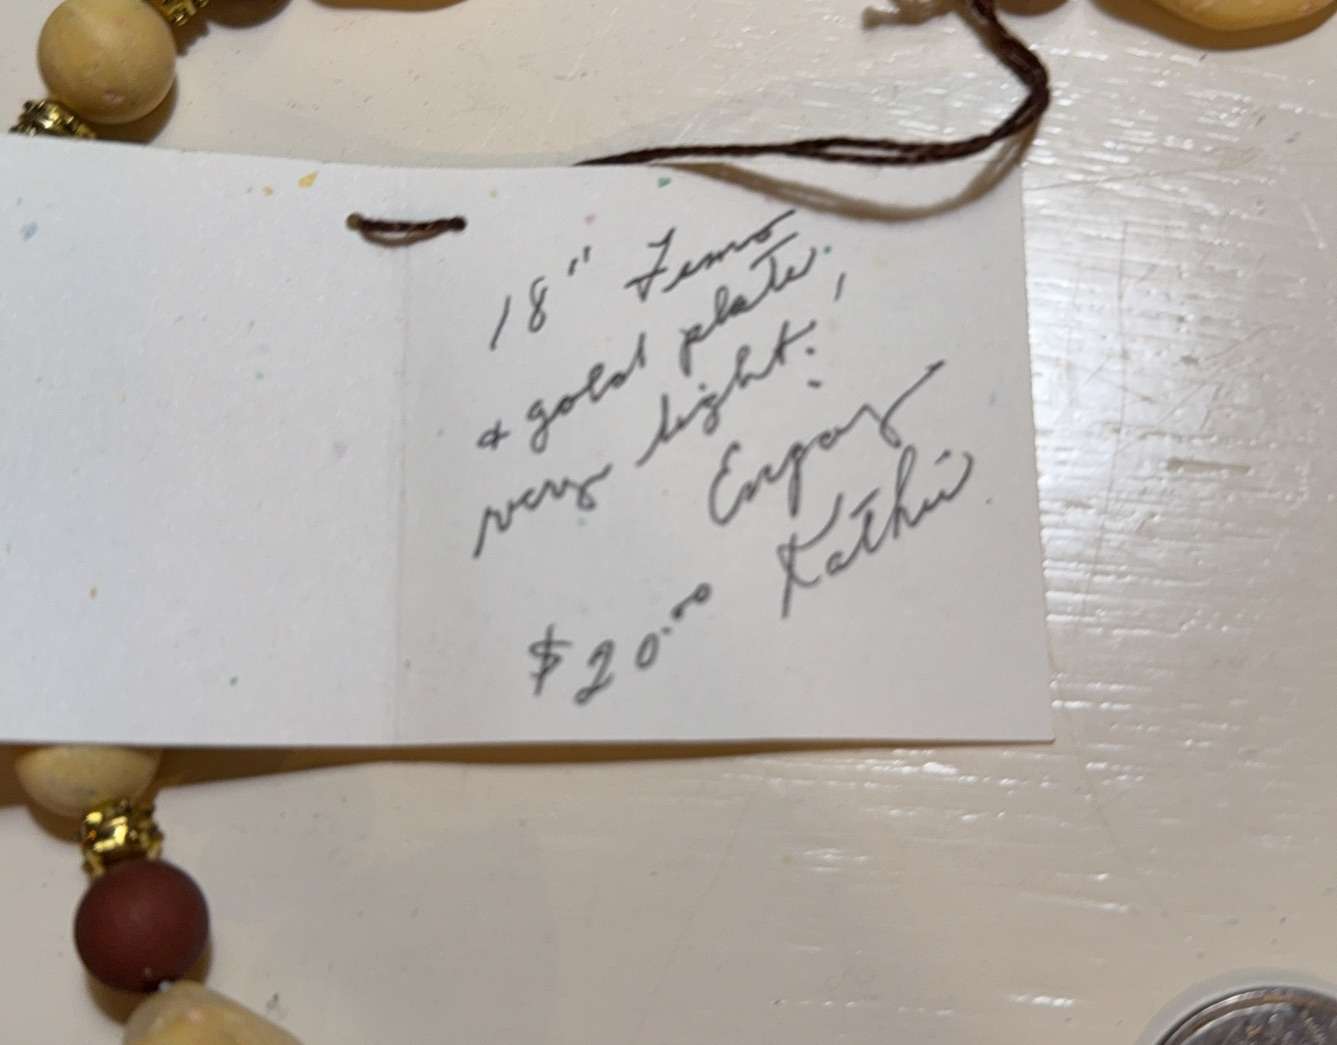 18" Fimo
& gold plate.
very light!
Enjoy
Kathie
$20.00